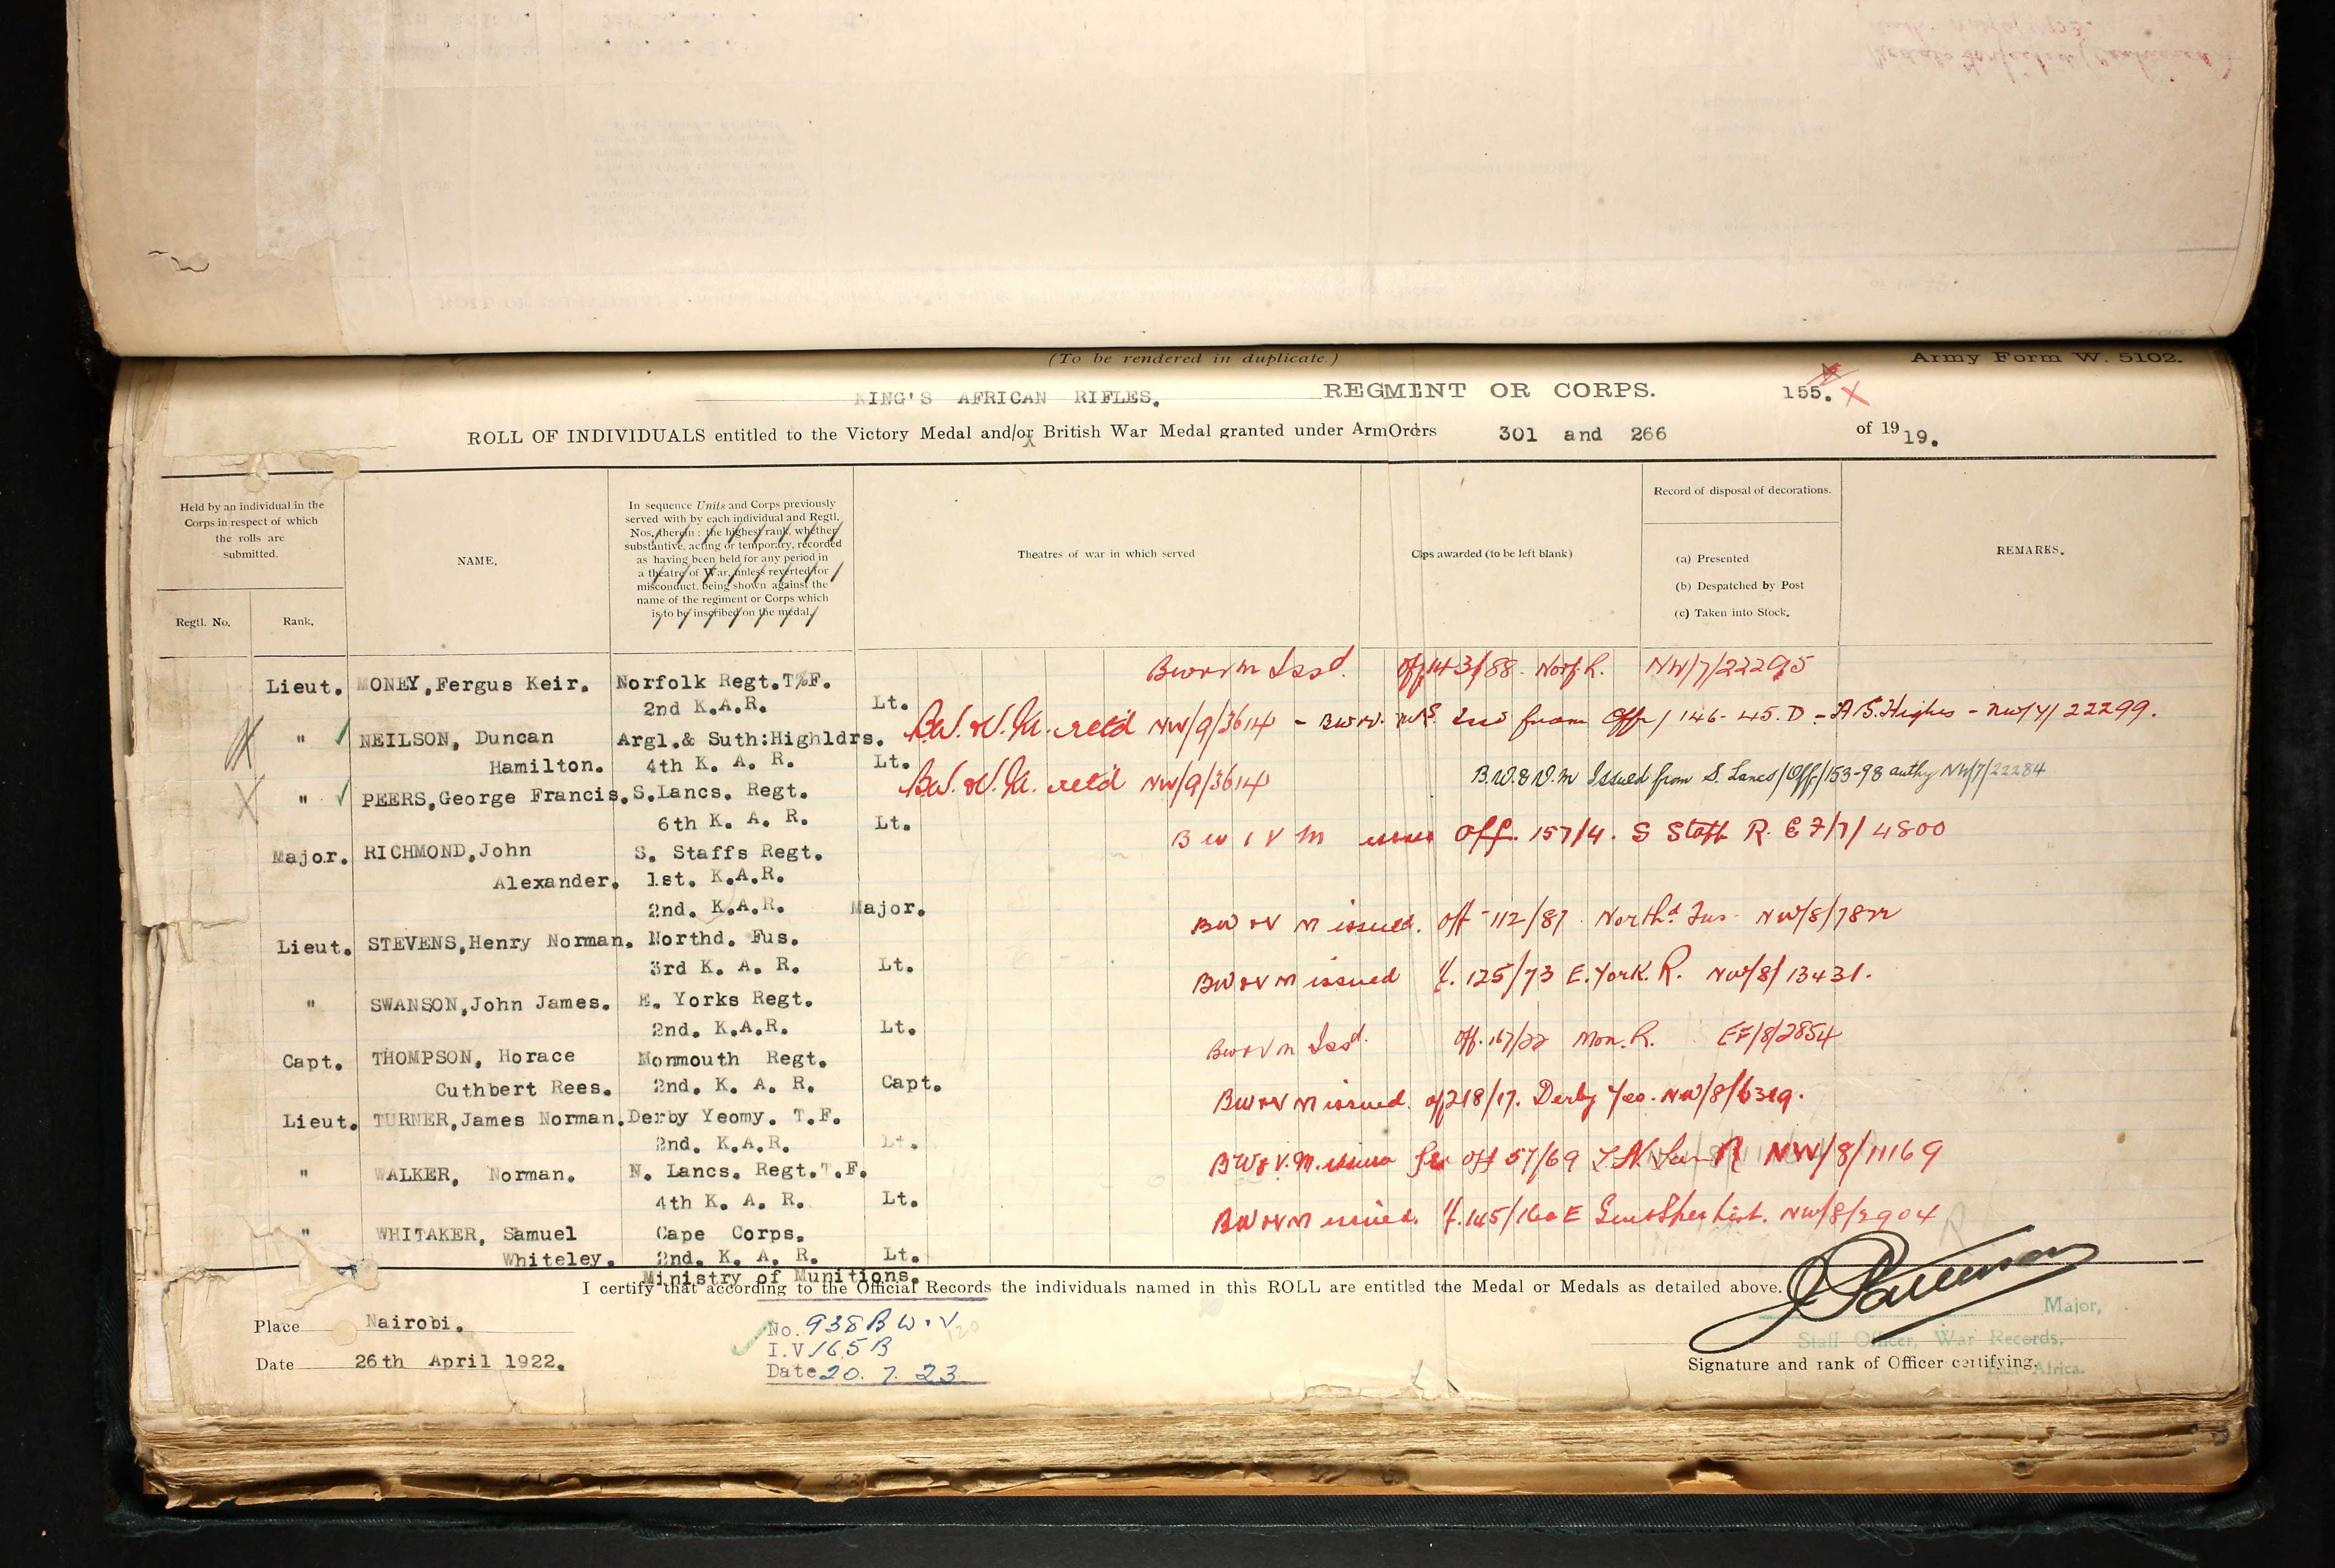 (To be rendered in duplicate.) Army Form W. 5102.
KING'S AFRICAN RIFLES. REGMENT OR CORPS. 155. X
ROLL OF INDIVIDUALS entitled to the Victory Medal and/or British War Medal granted under ArmOrders 301 and 266 of 19 19.
Held by an individual in the
Corps in respect of which
the rolls are
submitted.
Regtl. No.
Rank.
NAME.
In sequence Units and Corps previously
served with by each individual and Regtl.
Nos. therein : the highest rank, whether
substantive, acting or temporary, recorded
as having been held for any period in
a theatre of War, unless reverted for
misconduct, being shown against the
name of the regiment or Corps which
is to be inscribed on the medal.
Theatres of war in which served
Clps awarded (to be left blank)
Record of disposal of decorations.
(a) Presented
(b) Despatched by Post
(c) Taken into Stock.
REMARKS.
Lieut. MONEY, Fergus Keir. Norfolk Regt. T.F. BW&VM Issd. Off 143/88 Norf. R. NW/7/22295
2nd K.A.R. Lt.
" NEILSON, Duncan Argl. & Suth: Highldrs. B.W. & V.M. retd NW/9/3614 - from Off / 146-45. D - NW/7/22299.
Hamilton. 4th K. A. R. Lt.
" PEERS, George Francis. S. Lancs. Regt. B.W. & V.M. retd NW/9/3614 B.W. & V.M Issued from S. Lancs/Off/153-98 authy NW/7/22284
6th K. A. R. Lt.
Major. RICHMOND, John S. Staffs Regt. BW & VM Off. 157/4. S Staff R. EF/7/4800
Alexander. 1st. K.A.R.
2nd. K.A.R. Major.
Lieut. STEVENS, Henry Norman. Northd. Fus. BW & V M issued. Off 112/87 Northd Fus - NW/8/7822
3rd K. A. R. Lt.
" SWANSON, John James. E. Yorks Regt. BW & V M issued 125/73 E. York. R. NW/8/13431.
2nd. K.A.R. Lt.
Capt. THOMPSON, Horace Monmouth Regt. BW & V M Issd. Off. 167/22 Mon. R. EF/8/2854
Cuthbert Rees. 2nd. K. A. R. Capt.
Lieut. TURNER, James Norman. Derby Yeomy. T.F. BW & V M issued. 218/17. Derby Yeo. NW/8/6319.
2nd. K.A.R. Lt.
" WALKER, Norman. N. Lancs. Regt. T.F. BW & V.M. Off 57/69 NW/8/11169
4th K. A. R. Lt.
" WHITAKER, Samuel Cape Corps. BW & V M issued. 145/160 E List. NW/8/2904
Whiteley. 2nd. K. A. R. Lt.
Ministry of Munitions.
I certify that according to the Official Records the individuals named in this ROLL are entitled the Medal or Medals as detailed above.
Place Nairobi.
Date 26th April 1922.
No. 938 B W & V
I.V 165 B
Date 20. 7. 23
Major,
Staff Officer, War Records,
East Africa.
Signature and rank of Officer certifying.